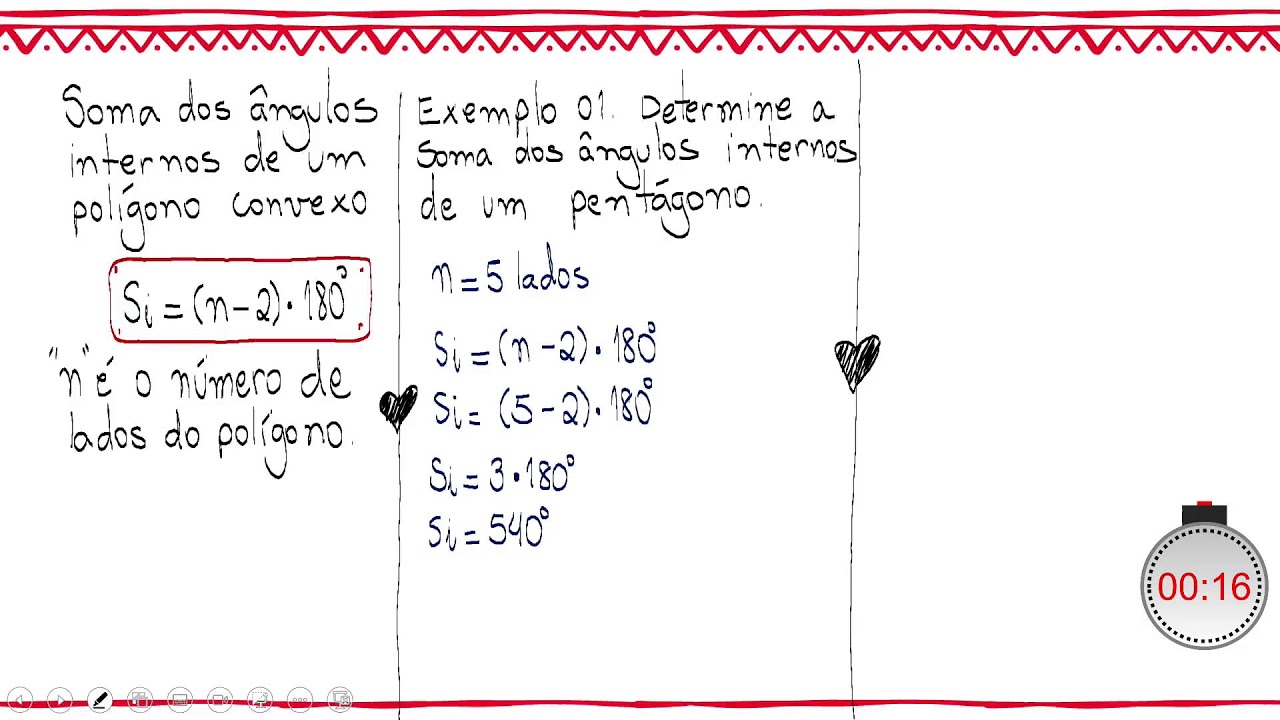 Soma dos ângulos
internos de um
polígono convexo
Si = (n-2)·180°
"n" é o número de
lados do polígono.
Exemplo 01. Determine a
soma dos ângulos internos
de um pentágono.
n = 5 lados
Si = (n-2)·180°
Si = (5-2)·180°
Si = 3·180°
Si = 540°
00:16